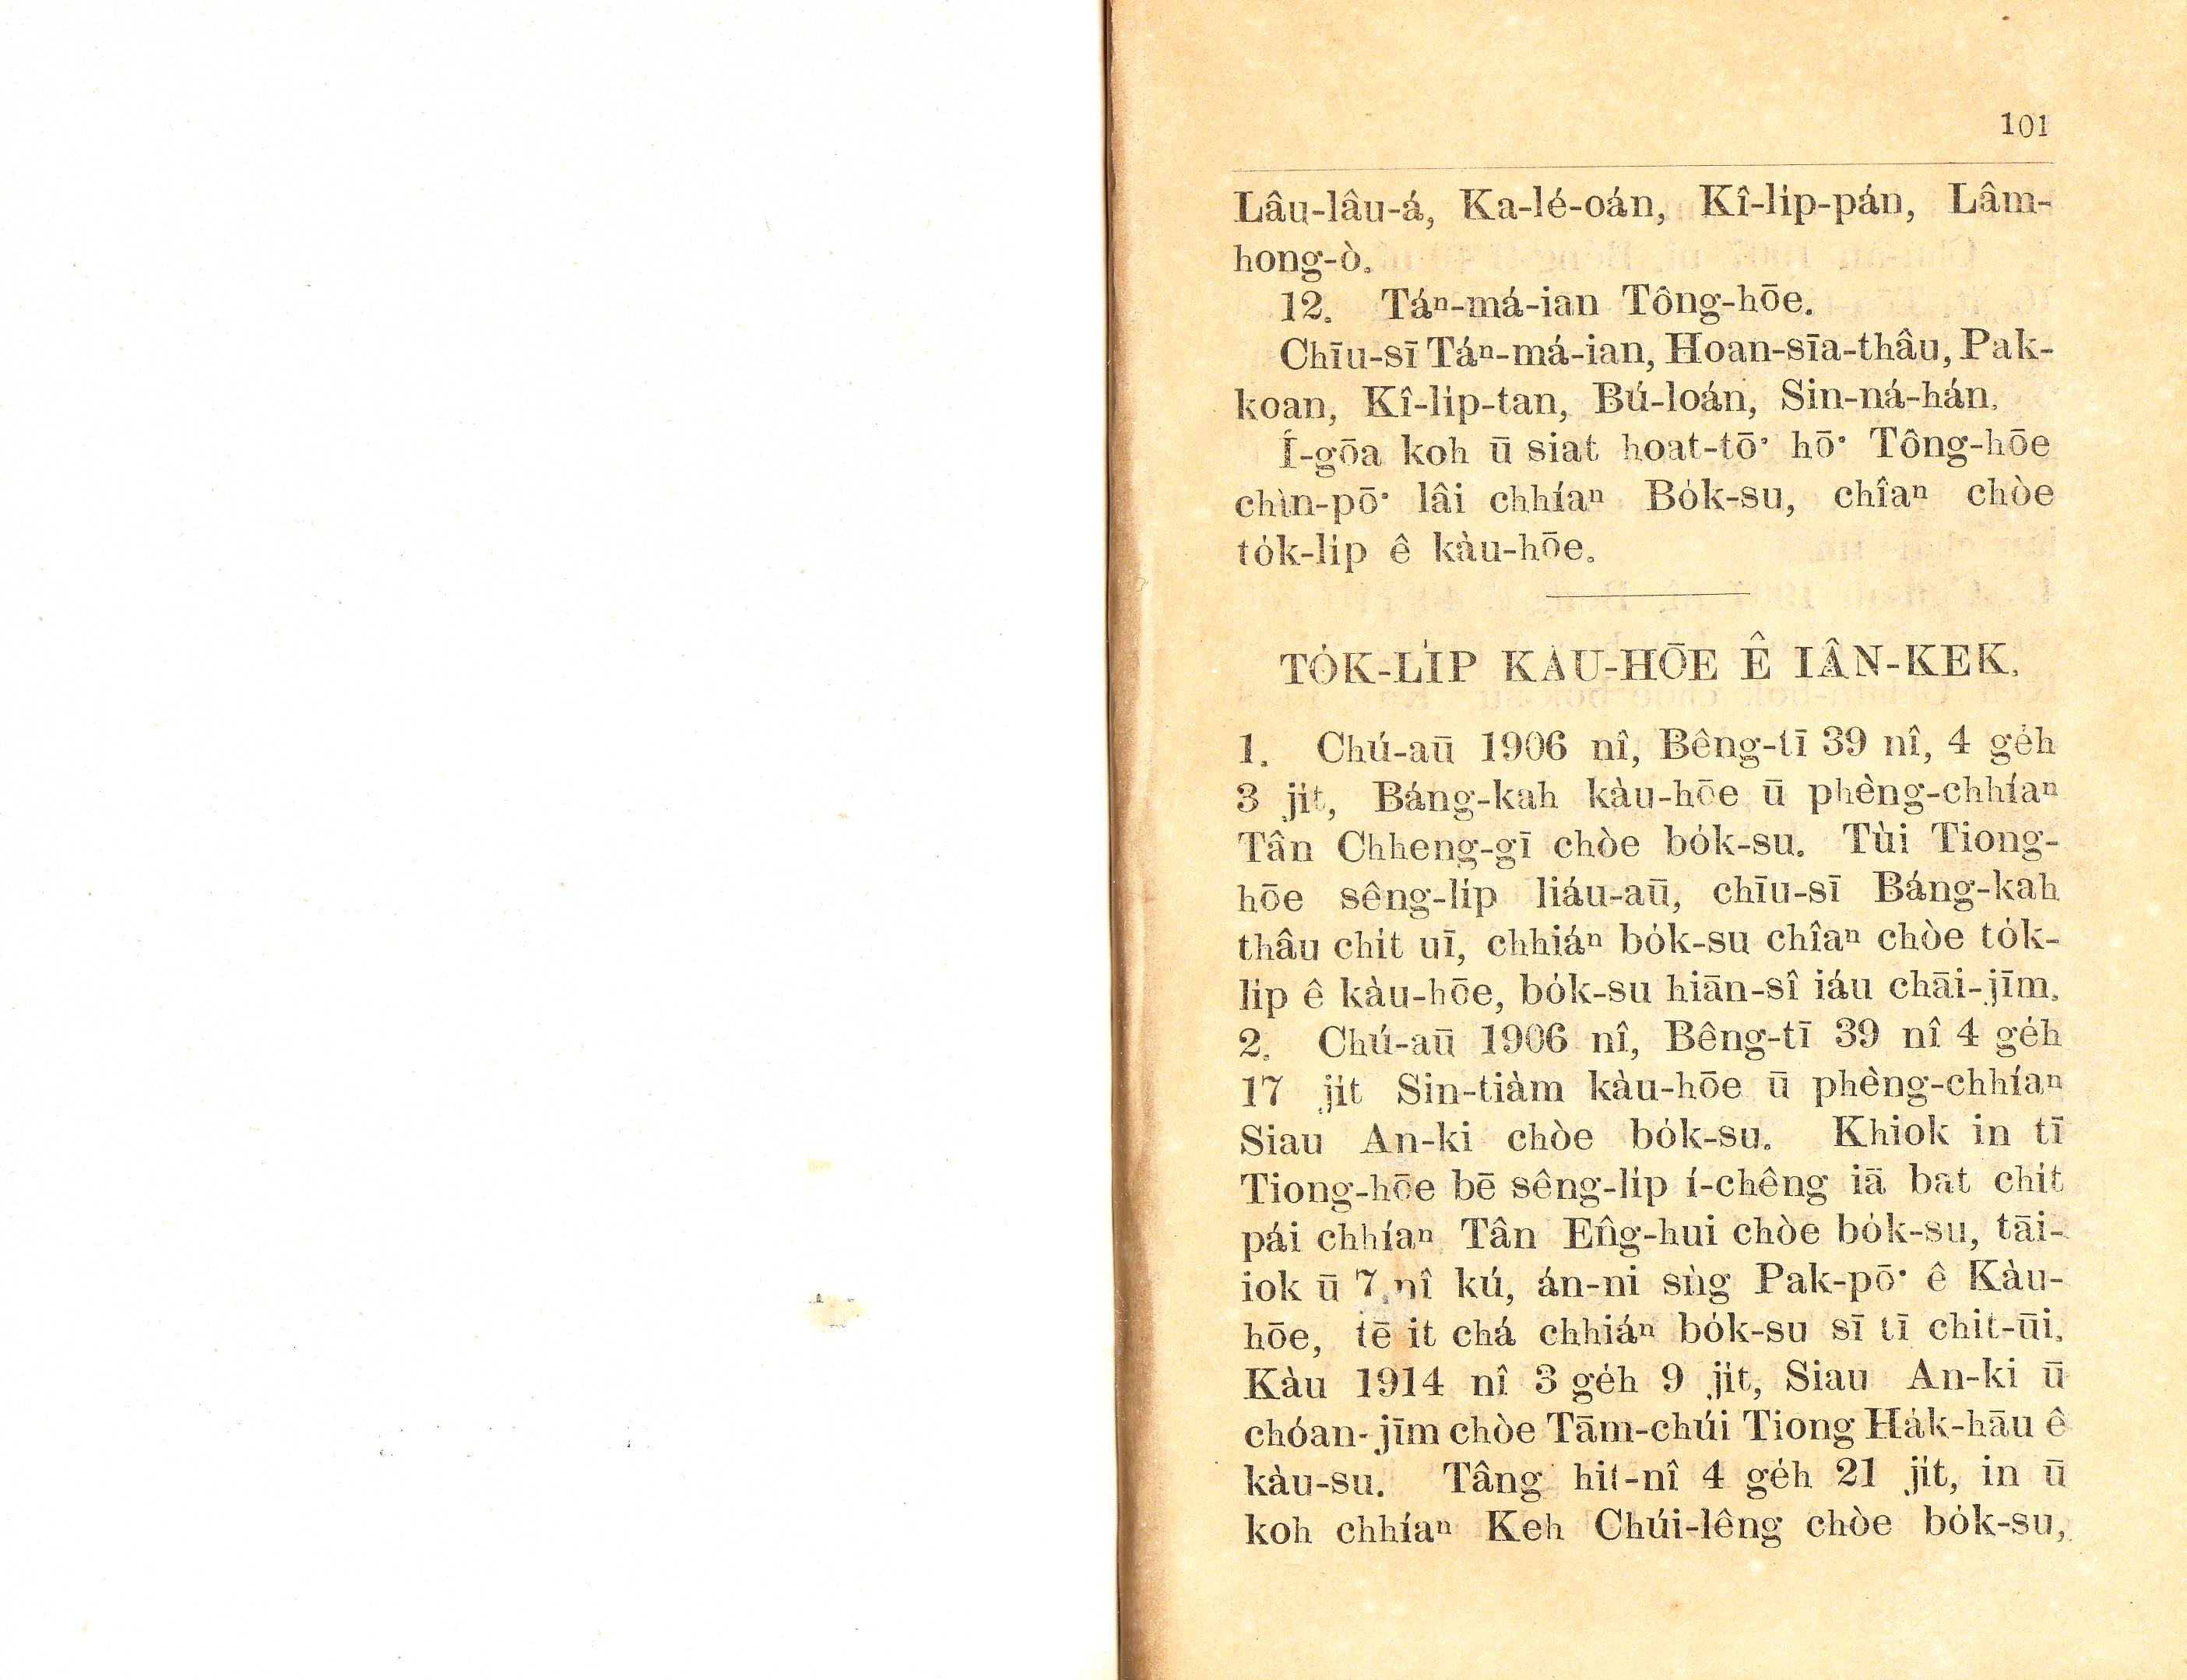 101
Lâu-lâu-á, Ka-lé-oán, Kî-li̍p-pán, Lâm-
hong-ò.
12. Táⁿ-má-ian Tông-hōe.
Chīu-sī Táⁿ-má-ian, Hoan-sīa-thâu, Pak-
koan, Kî-li̍p-tan, Bú-loán, Sin-ná-hán.
Í-gōa koh ū siat hoat-tō͘ hō͘ Tông-hōe
chìn-pō͘ lâi chhíaⁿ Bo̍k-su, chîaⁿ chòe
to̍k-li̍p ê kàu-hōe.
TO̍K-LI̍P KÀU-HŌE Ê IÂN-KEK.
1. Chú-aū 1906 nî, Bêng-tī 39 nî, 4 ge̍h
3 ji̍t, Báng-kah kàu-hōe ū phèng-chhíaⁿ
Tân Chheng-gī chòe bo̍k-su. Tùi Tiong-
hōe sêng-li̍p liáu-aū, chīu-sī Báng-kah
thâu chi̍t uī, chhiáⁿ bo̍k-su chîaⁿ chòe to̍k-
li̍p ê kàu-hōe, bo̍k-su hiān-sî iáu chāi-jīm.
2. Chú-aū 1906 nî, Bêng-tī 39 nî 4 ge̍h
17 ji̍t Sin-tiàm kàu-hōe ū phèng-chhíaⁿ
Siau An-ki chòe bo̍k-su. Khiok in tī
Tiong-hōe bē sêng-li̍p í-chêng iā bat chi̍t
pái chhíaⁿ Tân Êng-hui chòe bo̍k-su, tāi-
iok ū 7 nî kú, án-ni sǹg Pak-pō͘ ê Kàu-
hōe, tē it chá chhiáⁿ bo̍k-su sī tī chit-ūi.
Kàu 1914 nî 3 ge̍h 9 ji̍t, Siau An-ki ū
chóan-jīm chòe Tām-chúi Tiong Ha̍k-hāu ê
kàu-su. Tâng hit-nî 4 ge̍h 21 ji̍t, in ū
koh chhíaⁿ Keh Chúi-lêng chòe bo̍k-su,